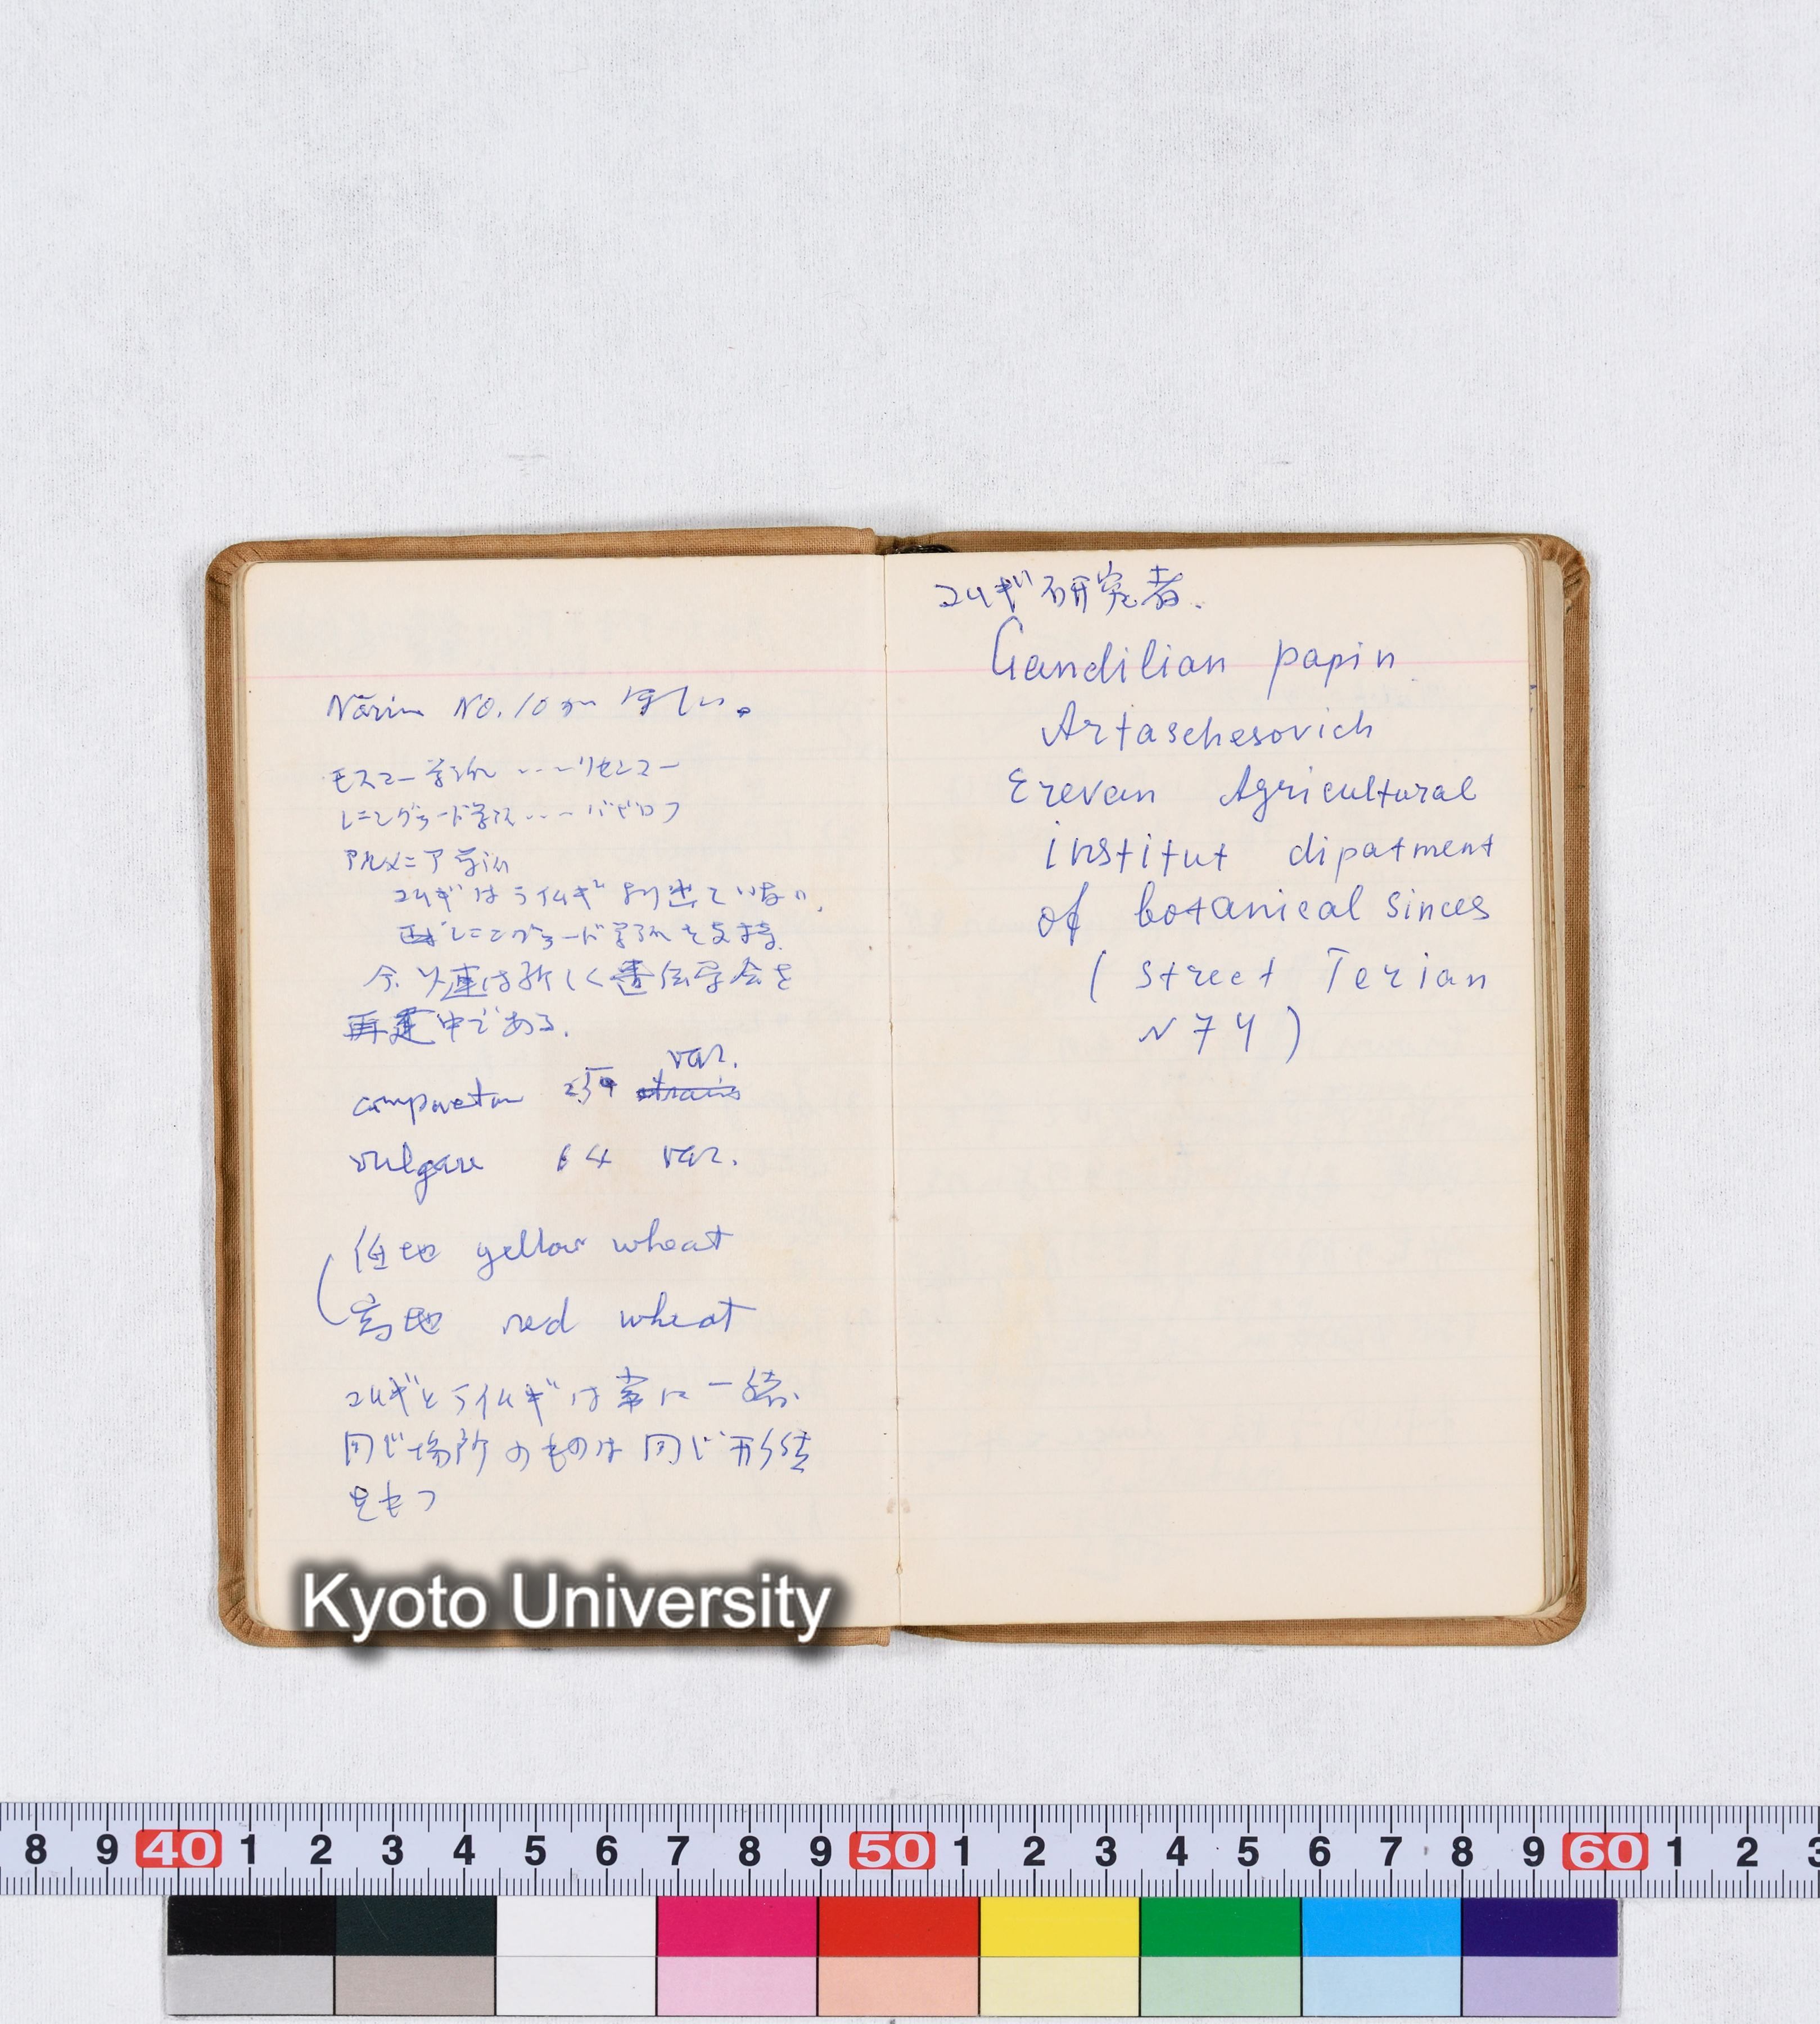 Nōrin NO.10が ほしい。
モスコー学派 ・・・リセンコー
レニングラード学派・・・バビロフ
アルメニア学派
コムギはライムギより出ていない.
レニングラード学派を支持.
今ソ連は新しく遺伝学会を
再建中である.
var.
compactum strains
vulgare 64 var.
低地 yellow wheat
高地 red wheat
コムギとライムギは常に一緒.
同じ場所のものは同じ形
をもつ
コムギ研究者.
Gandilian papin
Artaschesovich
Erevan Agricultural
institut dipatment
of botanical sinces
( street Terian
N 74 )
Kyoto University
8 9 40 1 2 3 4 5 6 7 8 9 50 1 2 3 4 5 6 7 8 9 60 1 2 3